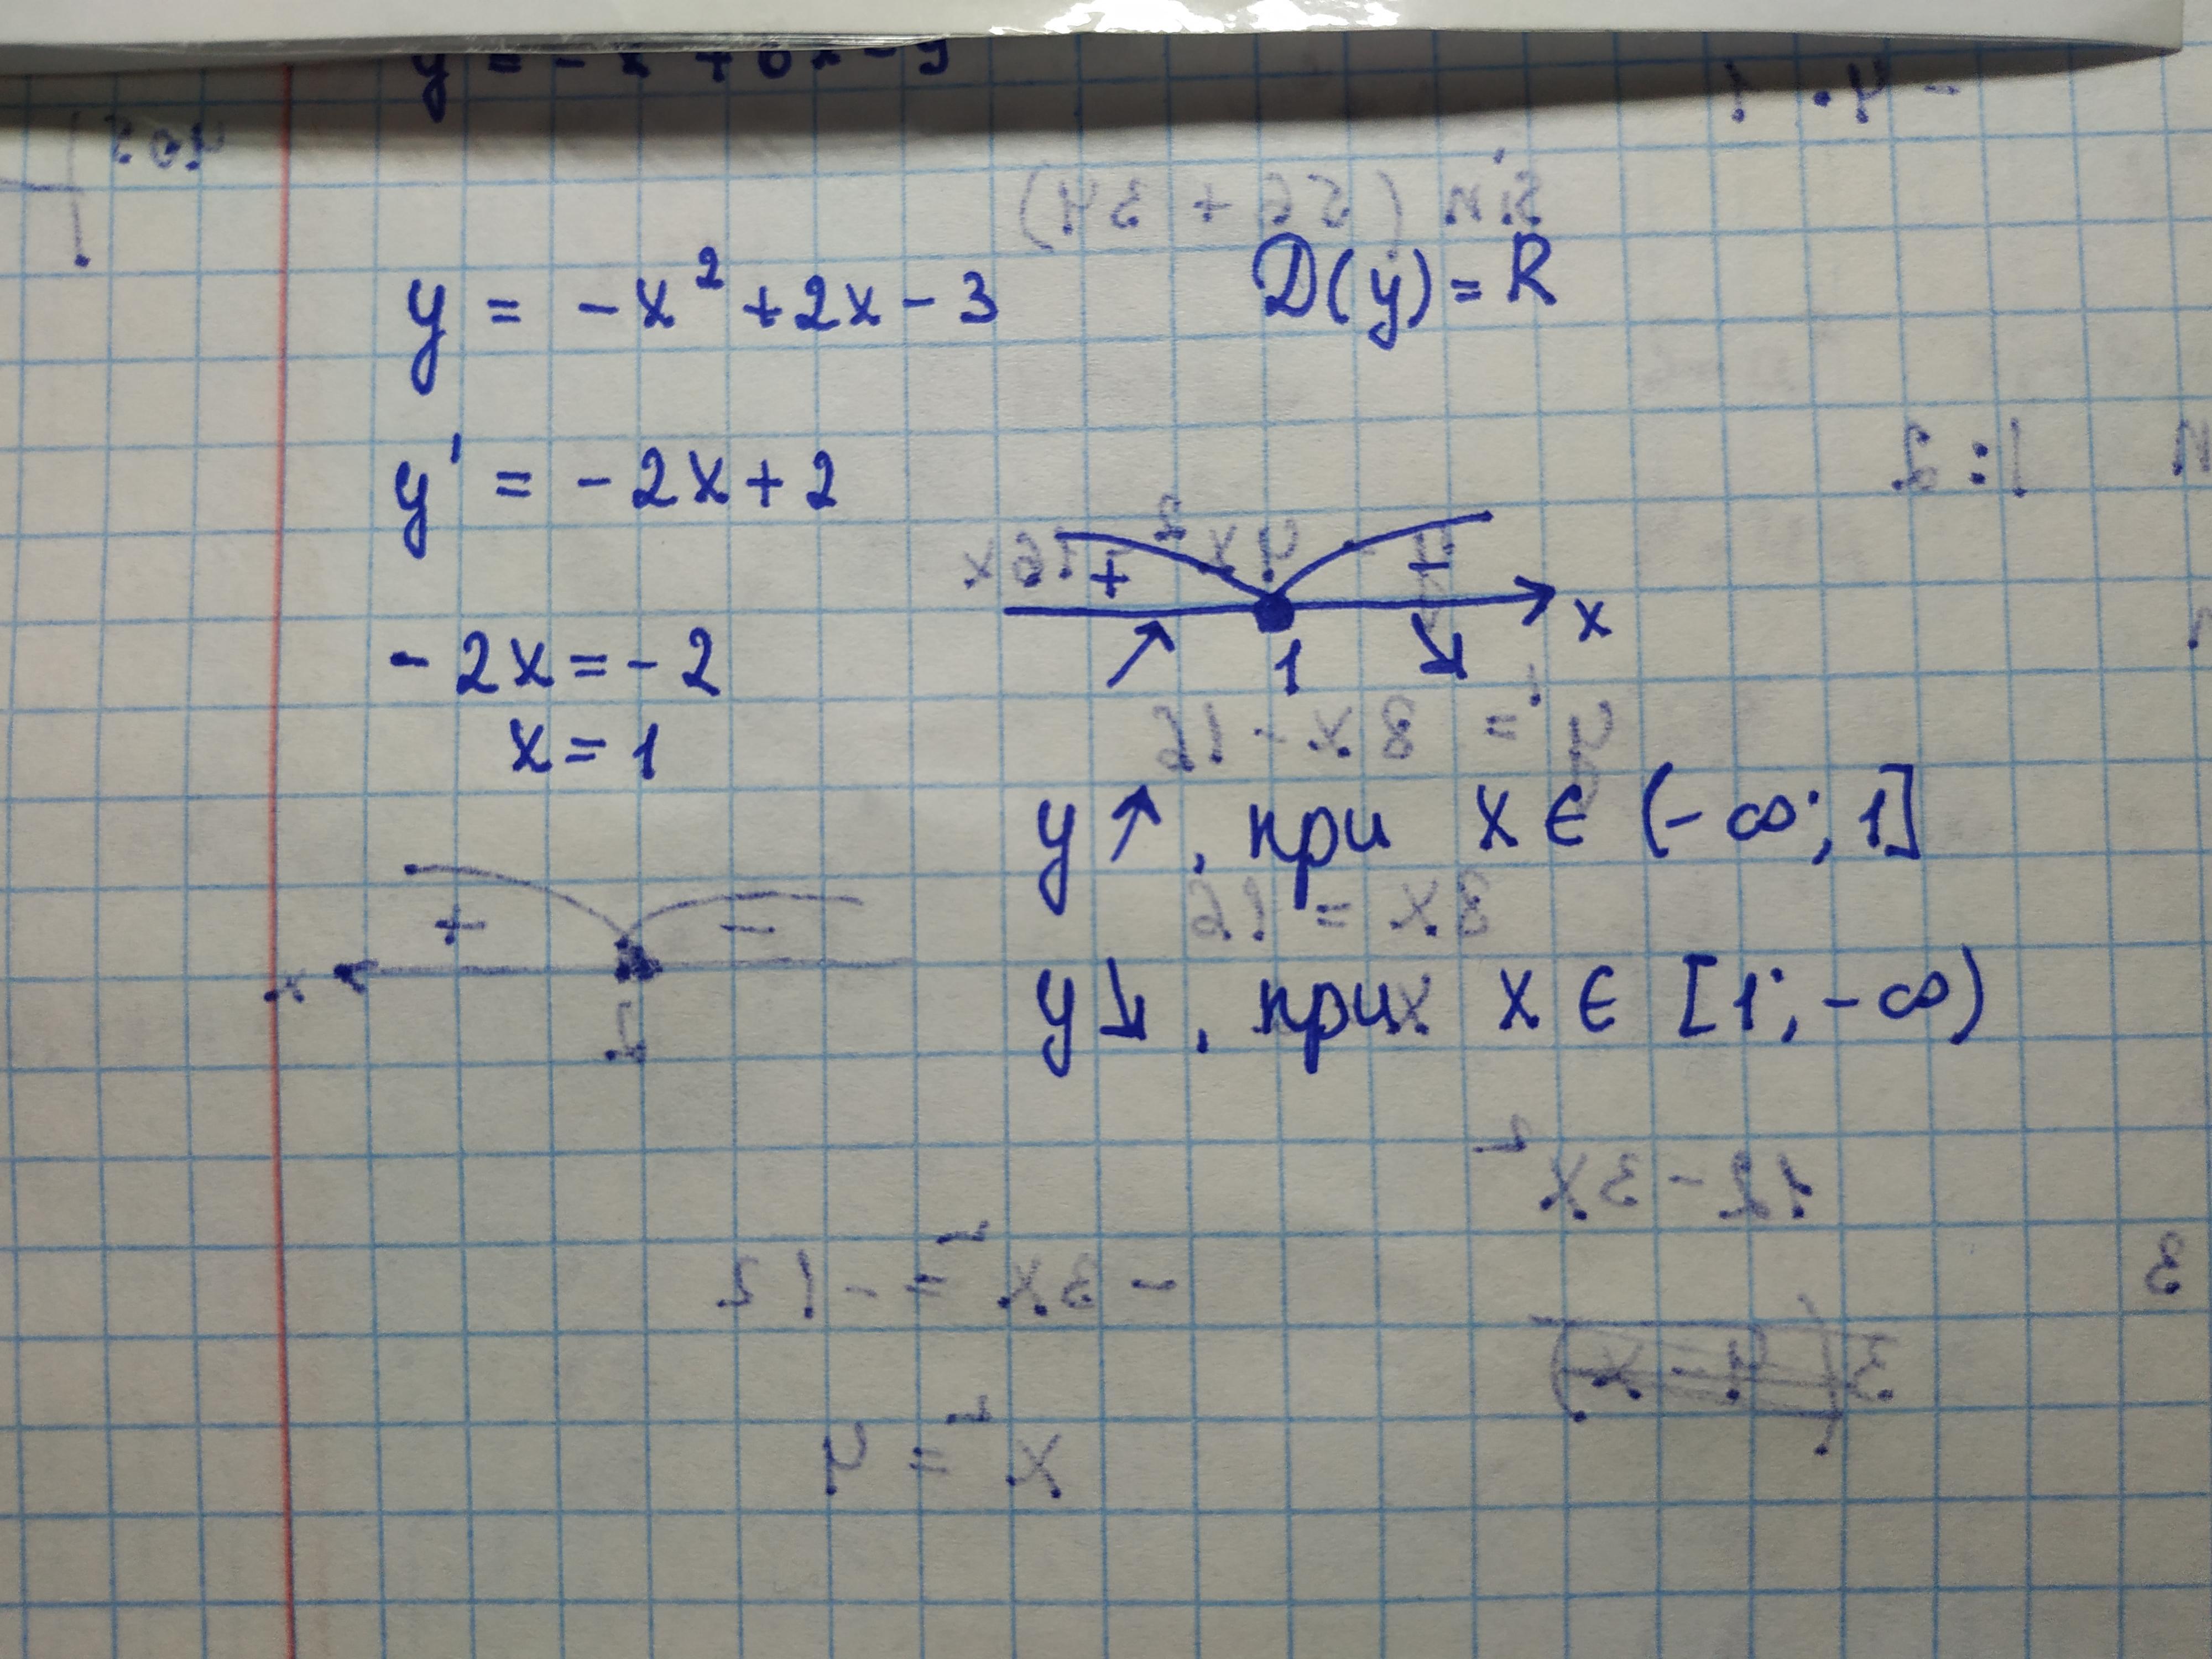 y = -x² + 2x - 3
D(y) = R
y' = -2x + 2
-2x = -2
x = 1
+ -
1 x
y↗, при x ∈ (-∞; 1]
y↘, при x ∈ [1; -∞)